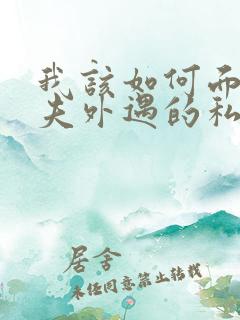 我該如何而
夫外遇的私
居舍
未经同意禁止转载